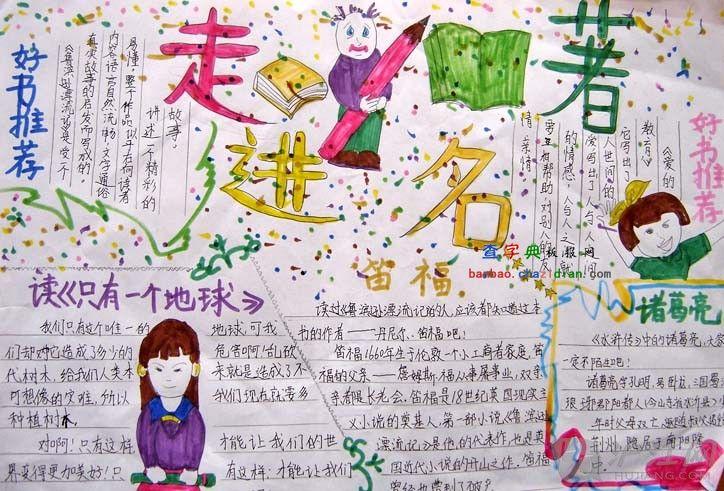 走进名著
好书推荐
《鲁滨孙漂流记》是受一个
真实故事的启发而写成的，
内容语言自然流畅，文字通俗
易懂，整个作品似乎在向读者
讲述一个精彩的
故事。
好书推荐
《爱的
教育》
它写出了
人世间的
爱，写出了人与人
的情感，人与人之间就
需互相帮助，对别人
情、亲情
查字典板报网
banbao.chazidian.com
读《只有一个地球》
我们只有这个唯一的地球，可我
们却对它造成了多少的危害啊！乱砍
代树木，给我们人类未来就是造成了不
可想像的灾难，所以我们现在就要多
种植树木
对啊！只有这样才能让我们的世
界变得更加美好！只有这样，才能让我们
笛福
读过《鲁滨逊漂流记》的人，应该都知道这本
书的作者——丹尼尔·笛福吧！
笛福1660年生于伦敦一个小工商者家庭，笛
福的父亲——詹姆斯·福从事屠宰业，双亲
亲都是长老会。笛福是18世纪英国现实主
义小说的奠基人，第一部小说《鲁滨逊
漂流记》是他的代表作，也是英
国近代小说的开山之作。笛福
诸葛亮
大家
一定不陌生吧！
诸葛亮字孔明，号卧龙，三国蜀
琅琊郡阳都人（今山东省沂水县）
年时父母双亡
荆州，隐居于南阳隆
中。
HUJIANG.COM